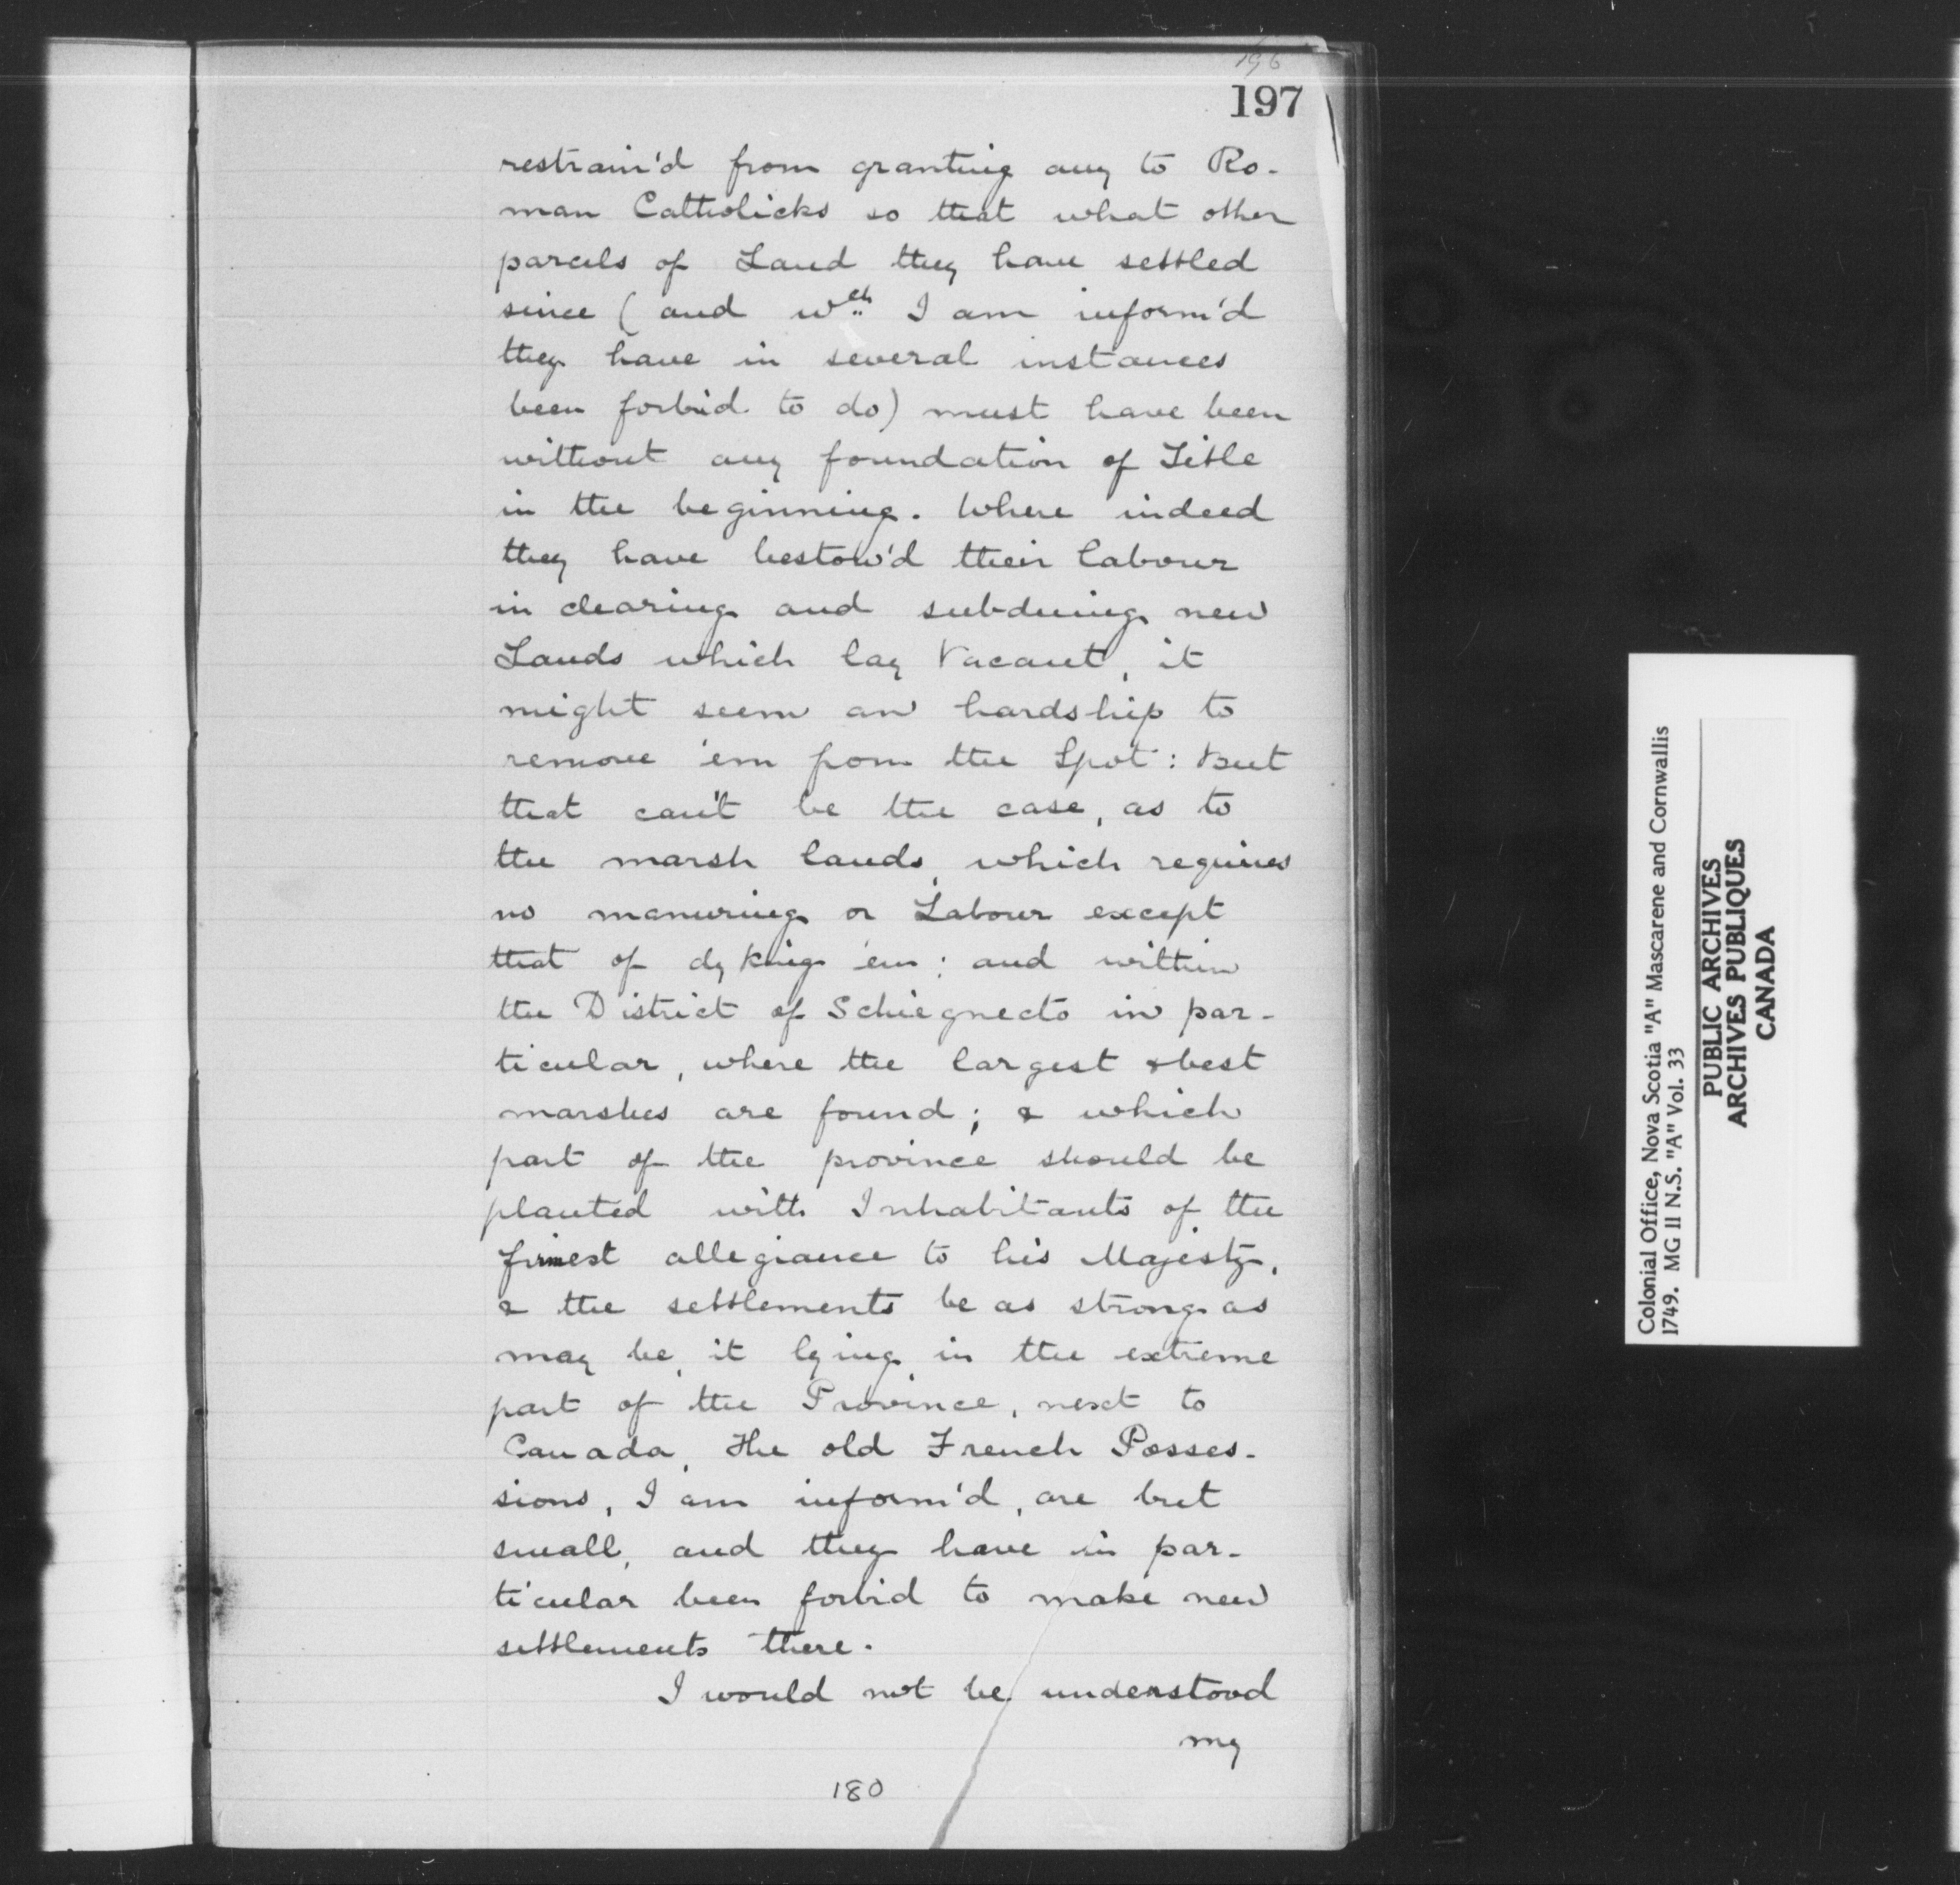 196
197
restrain'd from granting any to Ro-
man Catholicks so that what other
parcels of Land they have settled
since (and wch I am inform'd
they have in several instances
been forbid to do) must have been
without any foundation of Title
in the beginning. Where indeed
they have bestow'd their labour
in clearing and subduing new
Lands which lay Vacant, it
might seem an hardship to
remove 'em from the Spot: But
that can't be the case, as to
the marsh lands, which requires
no manuring or Labour except
that of dyking 'em: and within
the District of Schiegnecto in par-
ticular, where the largest & best
marshes are found; & which
part of the province should be
planted with Inhabitants of the
firmest allegiance to his Majesty,
& the settlements be as strong as
may be, it lying in the extreme
part of the Province, next to
Canada, the old French Posses-
sions, I am inform'd, are but
small, and they have in par-
ticular been forbid to make new
settlements there.
I would not be understood
my
180
Colonial Office, Nova Scotia "A" Mascarene and Cornwallis
1749. MG 11 N.S. "A" Vol. 33
PUBLIC ARCHIVES
ARCHIVES PUBLIQUES
CANADA